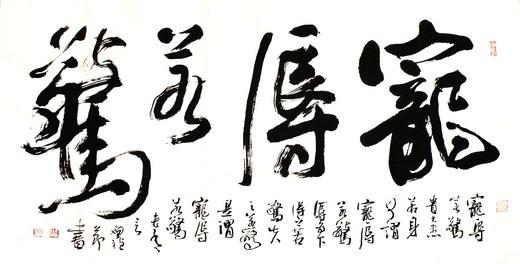 寵辱若驚
寵辱
若驚
貴患
若身
何謂
寵辱
若驚
辱下
得若
驚失
之若驚
是謂
寵辱
若驚
之
節
書